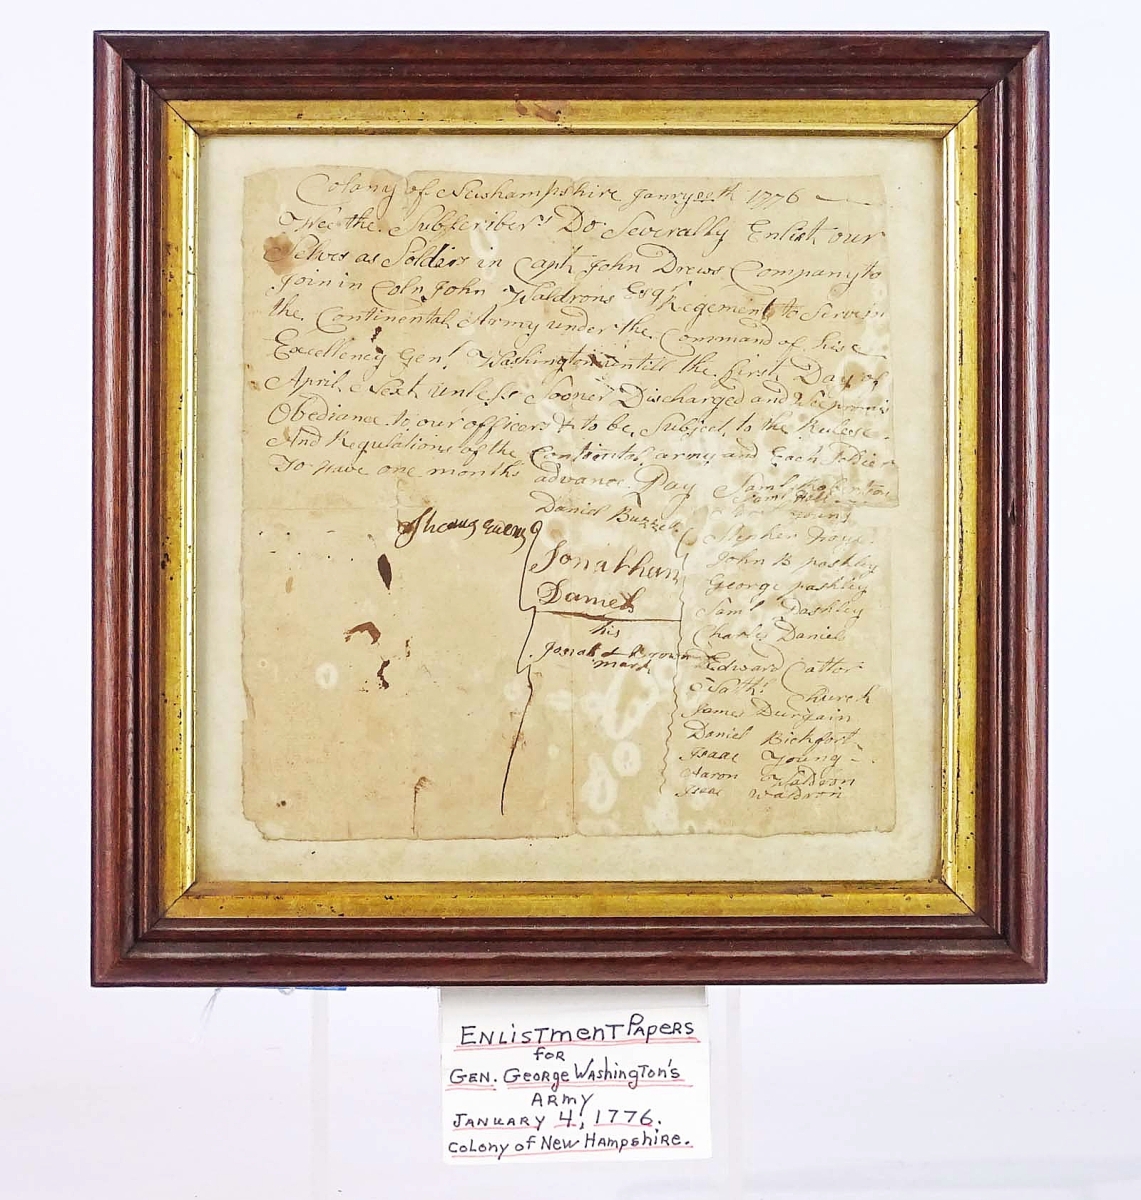 Colony of Newhampshire Janry 1776
Wee the Subscribers Do Severally Enlist our
Selves as Soldiers in Capt John Drews Company to
Join in Coln John Waldrons Esqr Regement to Serve in
the Continental Army under the Command of his
Excellency Genl Washington untill the first Day of
April Next unless Sooner Discharged and We promis
Obediance to our officers & to be Subject to the Rulese
And Regulations of the Continental army and Each Soldier
To have one months advance Pay
Saml
Saml
Young
Daniel Buzzel
Stephen
John B pashley
George pashley
Saml Pashley
Charles Daniel
Edward Cattor
Nathl Church
James Durgain
Daniel Bickfort
Isaac Young
Aaron Waldron
Isaac Waldron
Jonathan
Daniels
his
Josiah + Brown
mark
Enlistment Papers
for
Gen. George Washington's
Army
January 4, 1776.
Colony of New Hampshire.